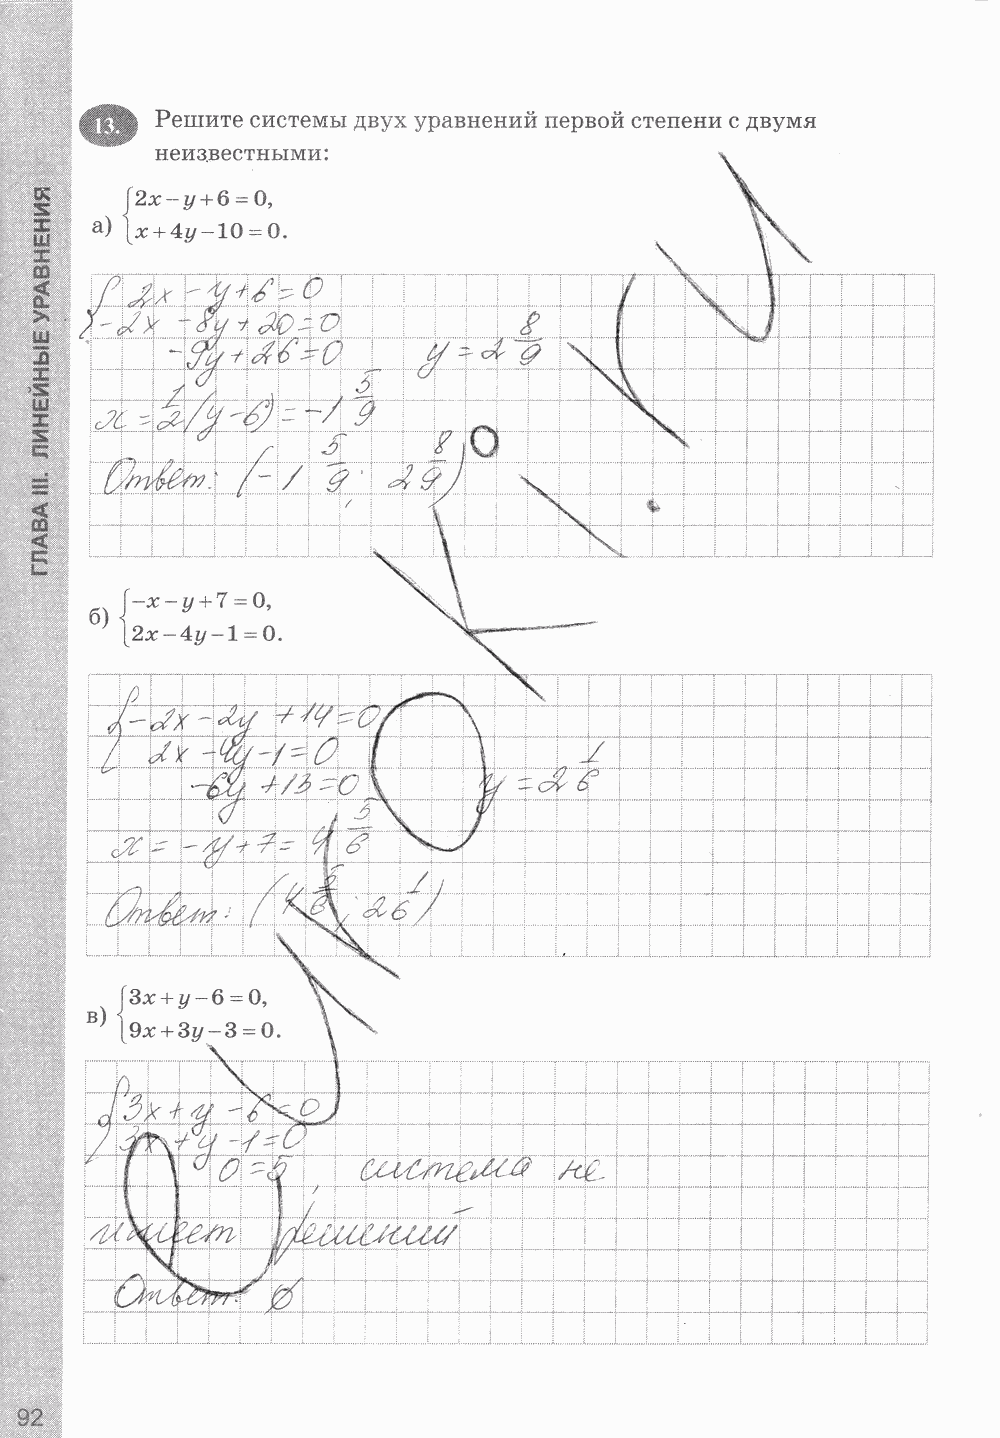 ГЛАВА III. ЛИНЕЙНЫЕ УРАВНЕНИЯ
13. Решите системы двух уравнений первой степени с двумя
неизвестными:
а) {2x − y + 6 = 0,
x + 4y − 10 = 0.
{2x − y + 6 = 0
−2x − 8y + 20 = 0
−9y + 26 = 0 y = 2 8/9
x = 1/2 (y − 6) = −1 5/9
Ответ: (−1 5/9; 2 8/9)
б) {−x − y + 7 = 0,
2x − 4y − 1 = 0.
{−2x − 2y + 14 = 0
2x − 4y − 1 = 0
−6y + 13 = 0 y = 2 1/6
x = −y + 7 = 4 5/6
Ответ: (4 5/6; 2 1/6)
в) {3x + y − 6 = 0,
9x + 3y − 3 = 0.
{3x + y − 6 = 0
3x + y − 1 = 0
0 = 5, система не
имеет решений
Ответ: ∅
92